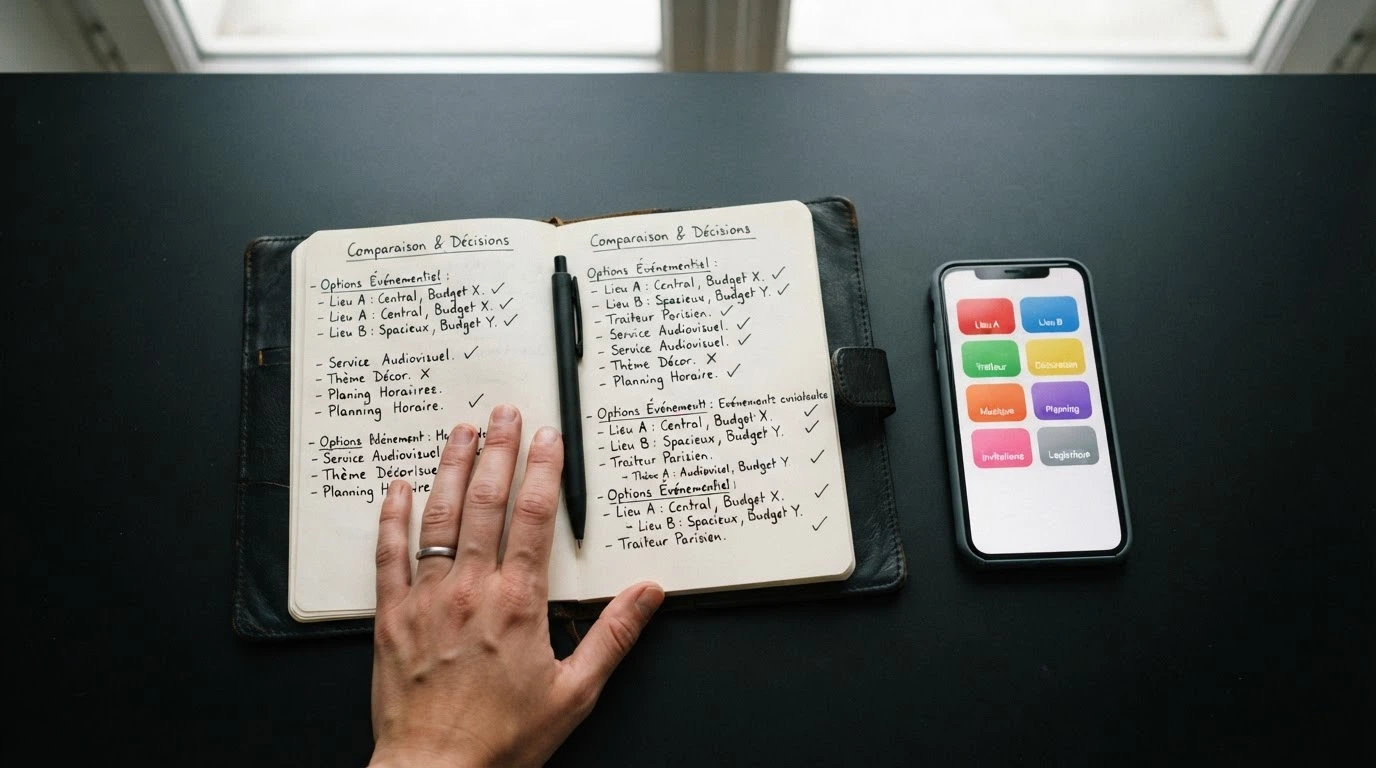 Comparaison & Décisions
- Options Événementiel :
- Lieu A : Central, Budget X. ✓
- Lieu A : Central, Budget X. ✓
- Lieu B : Spacieux, Budget Y. ✓
- Service Audiovisuel. ✓
- Thème Décor. X
- Planing Horaires.
- Planning Horaire. ✓
- Options :
- Service Audiovisuel
- Thème
- Planning
Comparaison & Décisions
Options Événementiel :
- Lieu A : Central, Budget X. ✓
- Lieu B : Spacieux, Budget Y. ✓
- Traiteur Parisien. ✓
- Service Audiovisuel. ✓
- Service Audiovisuel. ✓
- Thème Décor. X
- Planning Horaire. ✓
- Options Événement :
- Lieu A : Central, Budget X. ✓
- Lieu B : Spacieux, Budget Y. ✓
- Traiteur Parisien.
- A : Budget Y. ✓
- Options Événementiel :
- Lieu A : Central, Budget X. ✓
- Lieu B : Spacieux, Budget Y. ✓
- Traiteur Parisien.
Lieu A
Lieu B
Planning
Invitations